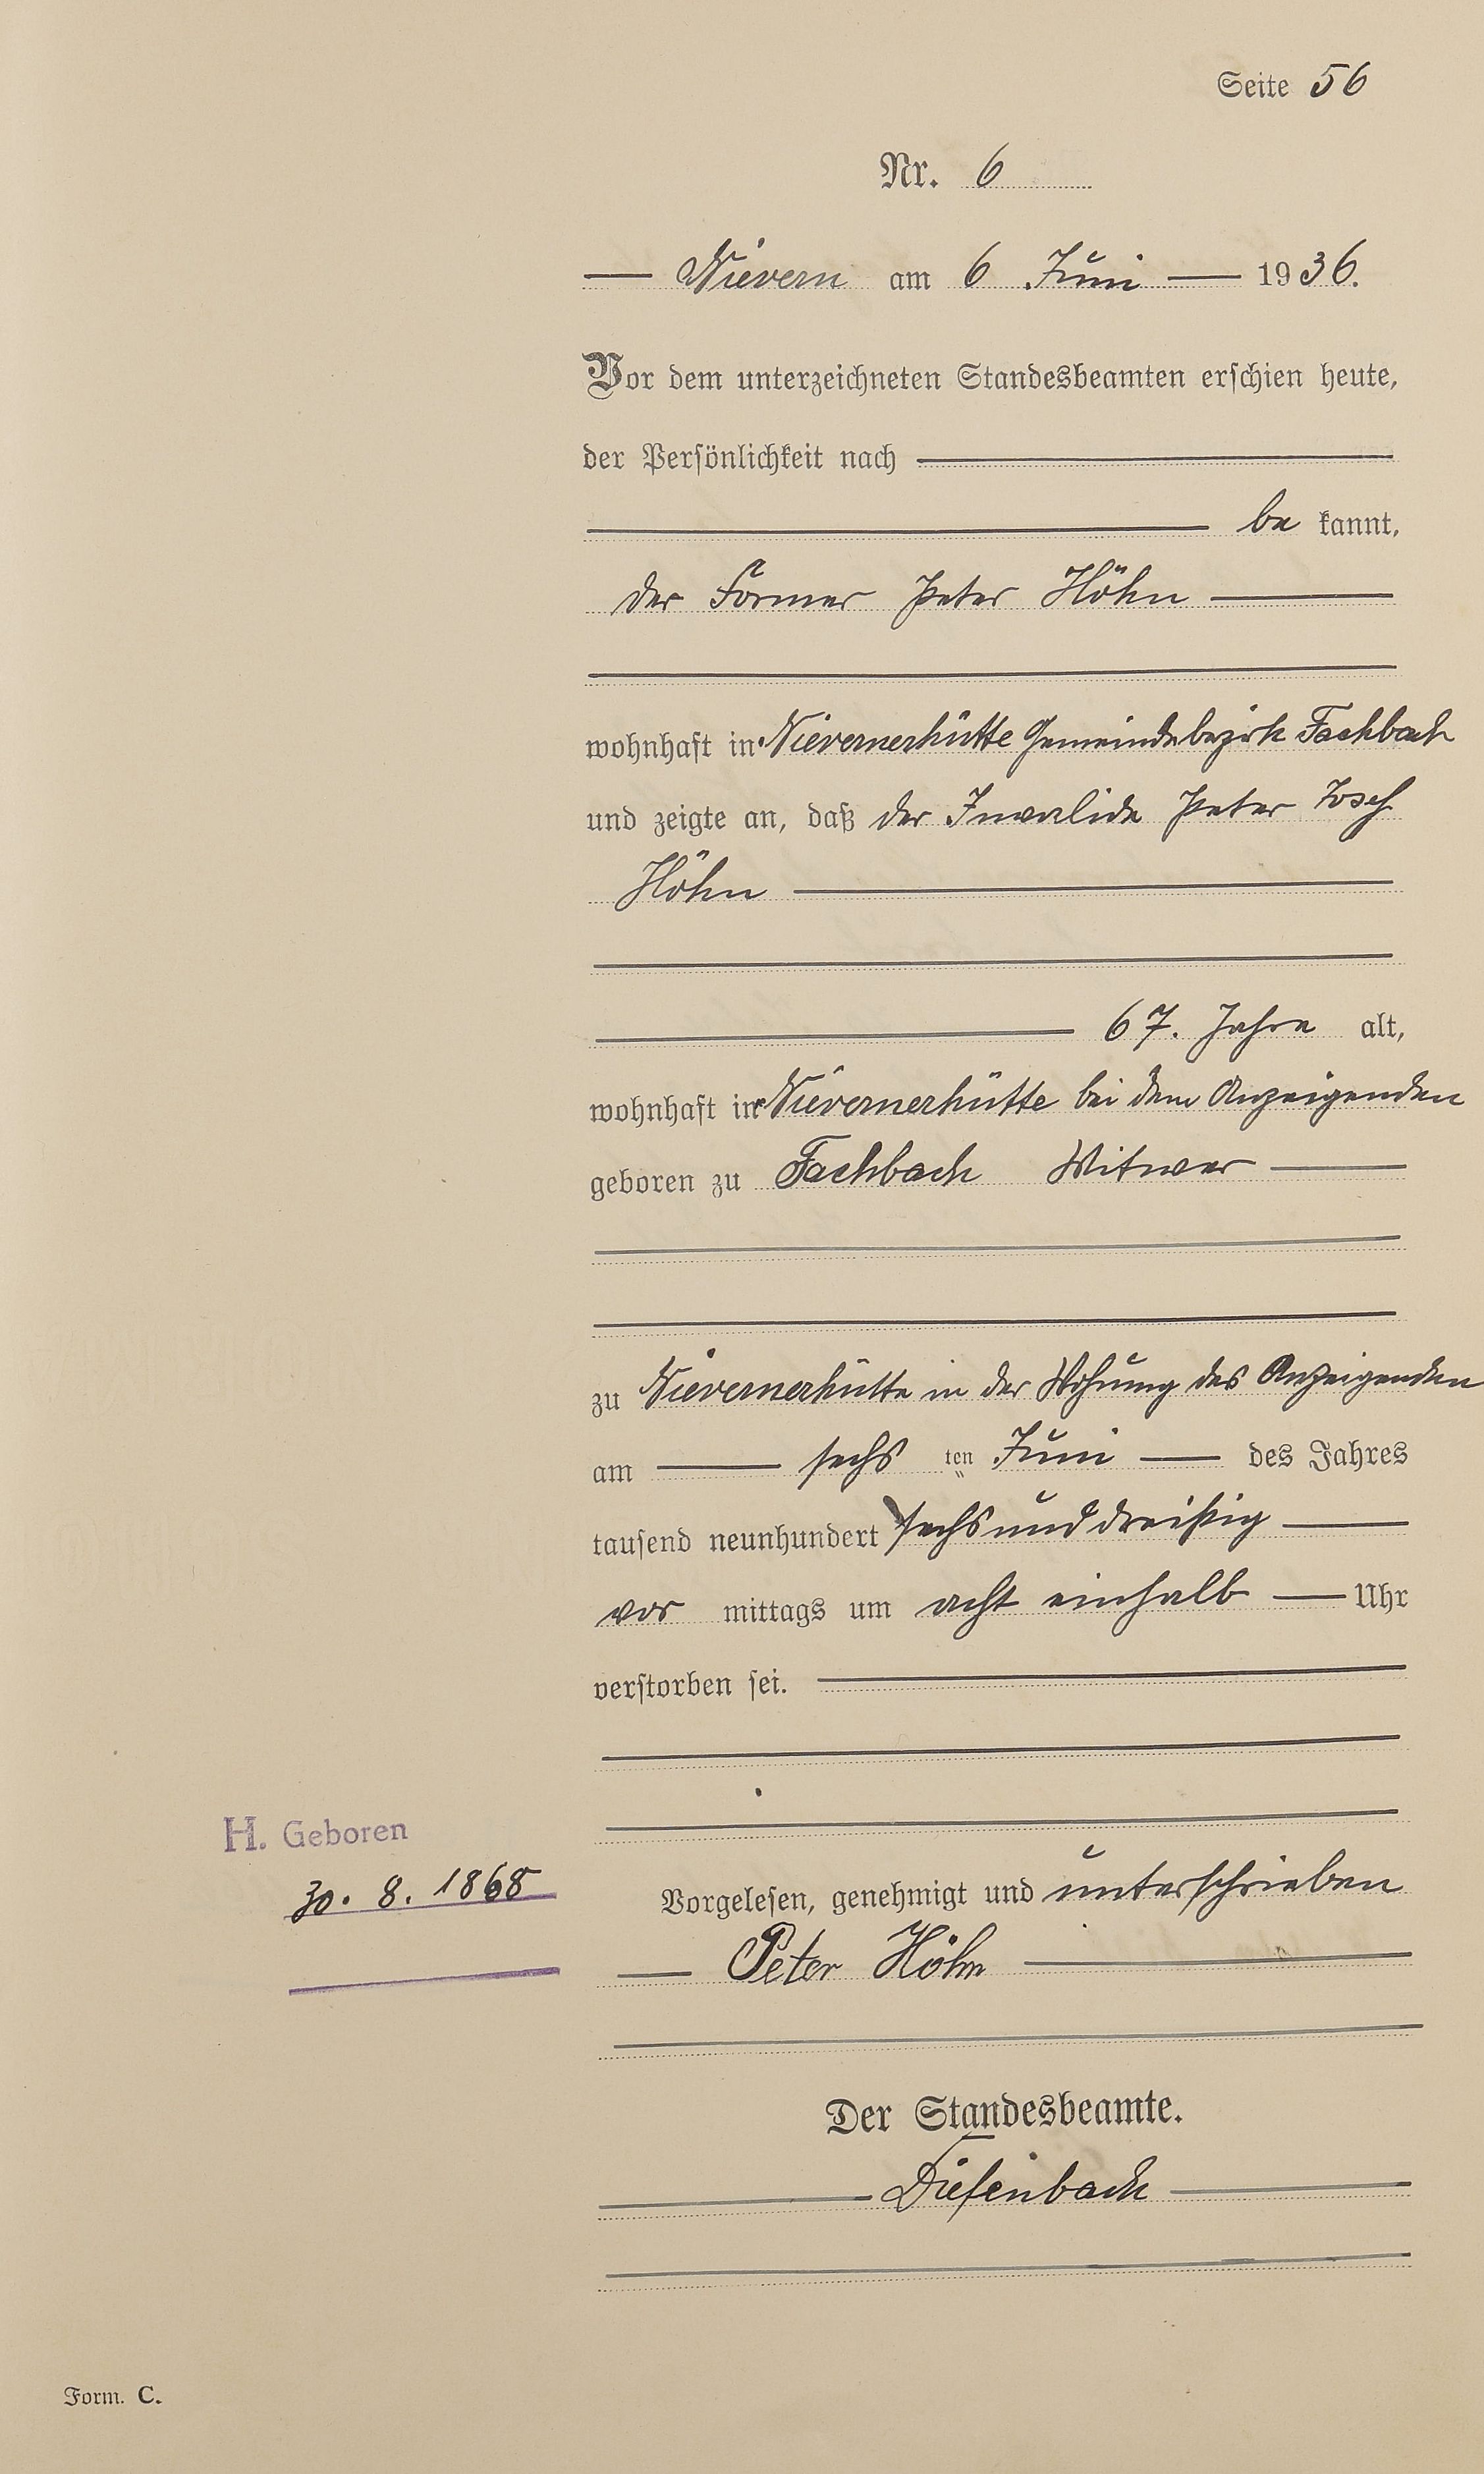 Seite 56
Nr. 6
Nievern am 6 Juni 1936.
Vor dem unterzeichneten Standesbeamten erschien heute,
der Persönlichkeit nach
be kannt,
der Former Peter Höhn
wohnhaft in Nievernerhütte Gemeindebezirk Fachbach
und zeigte an, daß der Invalide Peter Josef
Höhn
67. Jahre alt,
wohnhaft in Nievernerhütte bei dem Anzeigenden
geboren zu Fachbach Witwer
zu Nievernerhütte in der Wohnung des Anzeigenden
am sechs ten Juni des Jahres
tausend neunhundert sechsunddreißig
vor mittags um acht einhalb Uhr
verstorben sei.
H. Geboren
30. 8. 1868
Vorgelesen, genehmigt und unterschrieben
Peter Höhn
Der Standesbeamte.
Diefenbach
Form. C.